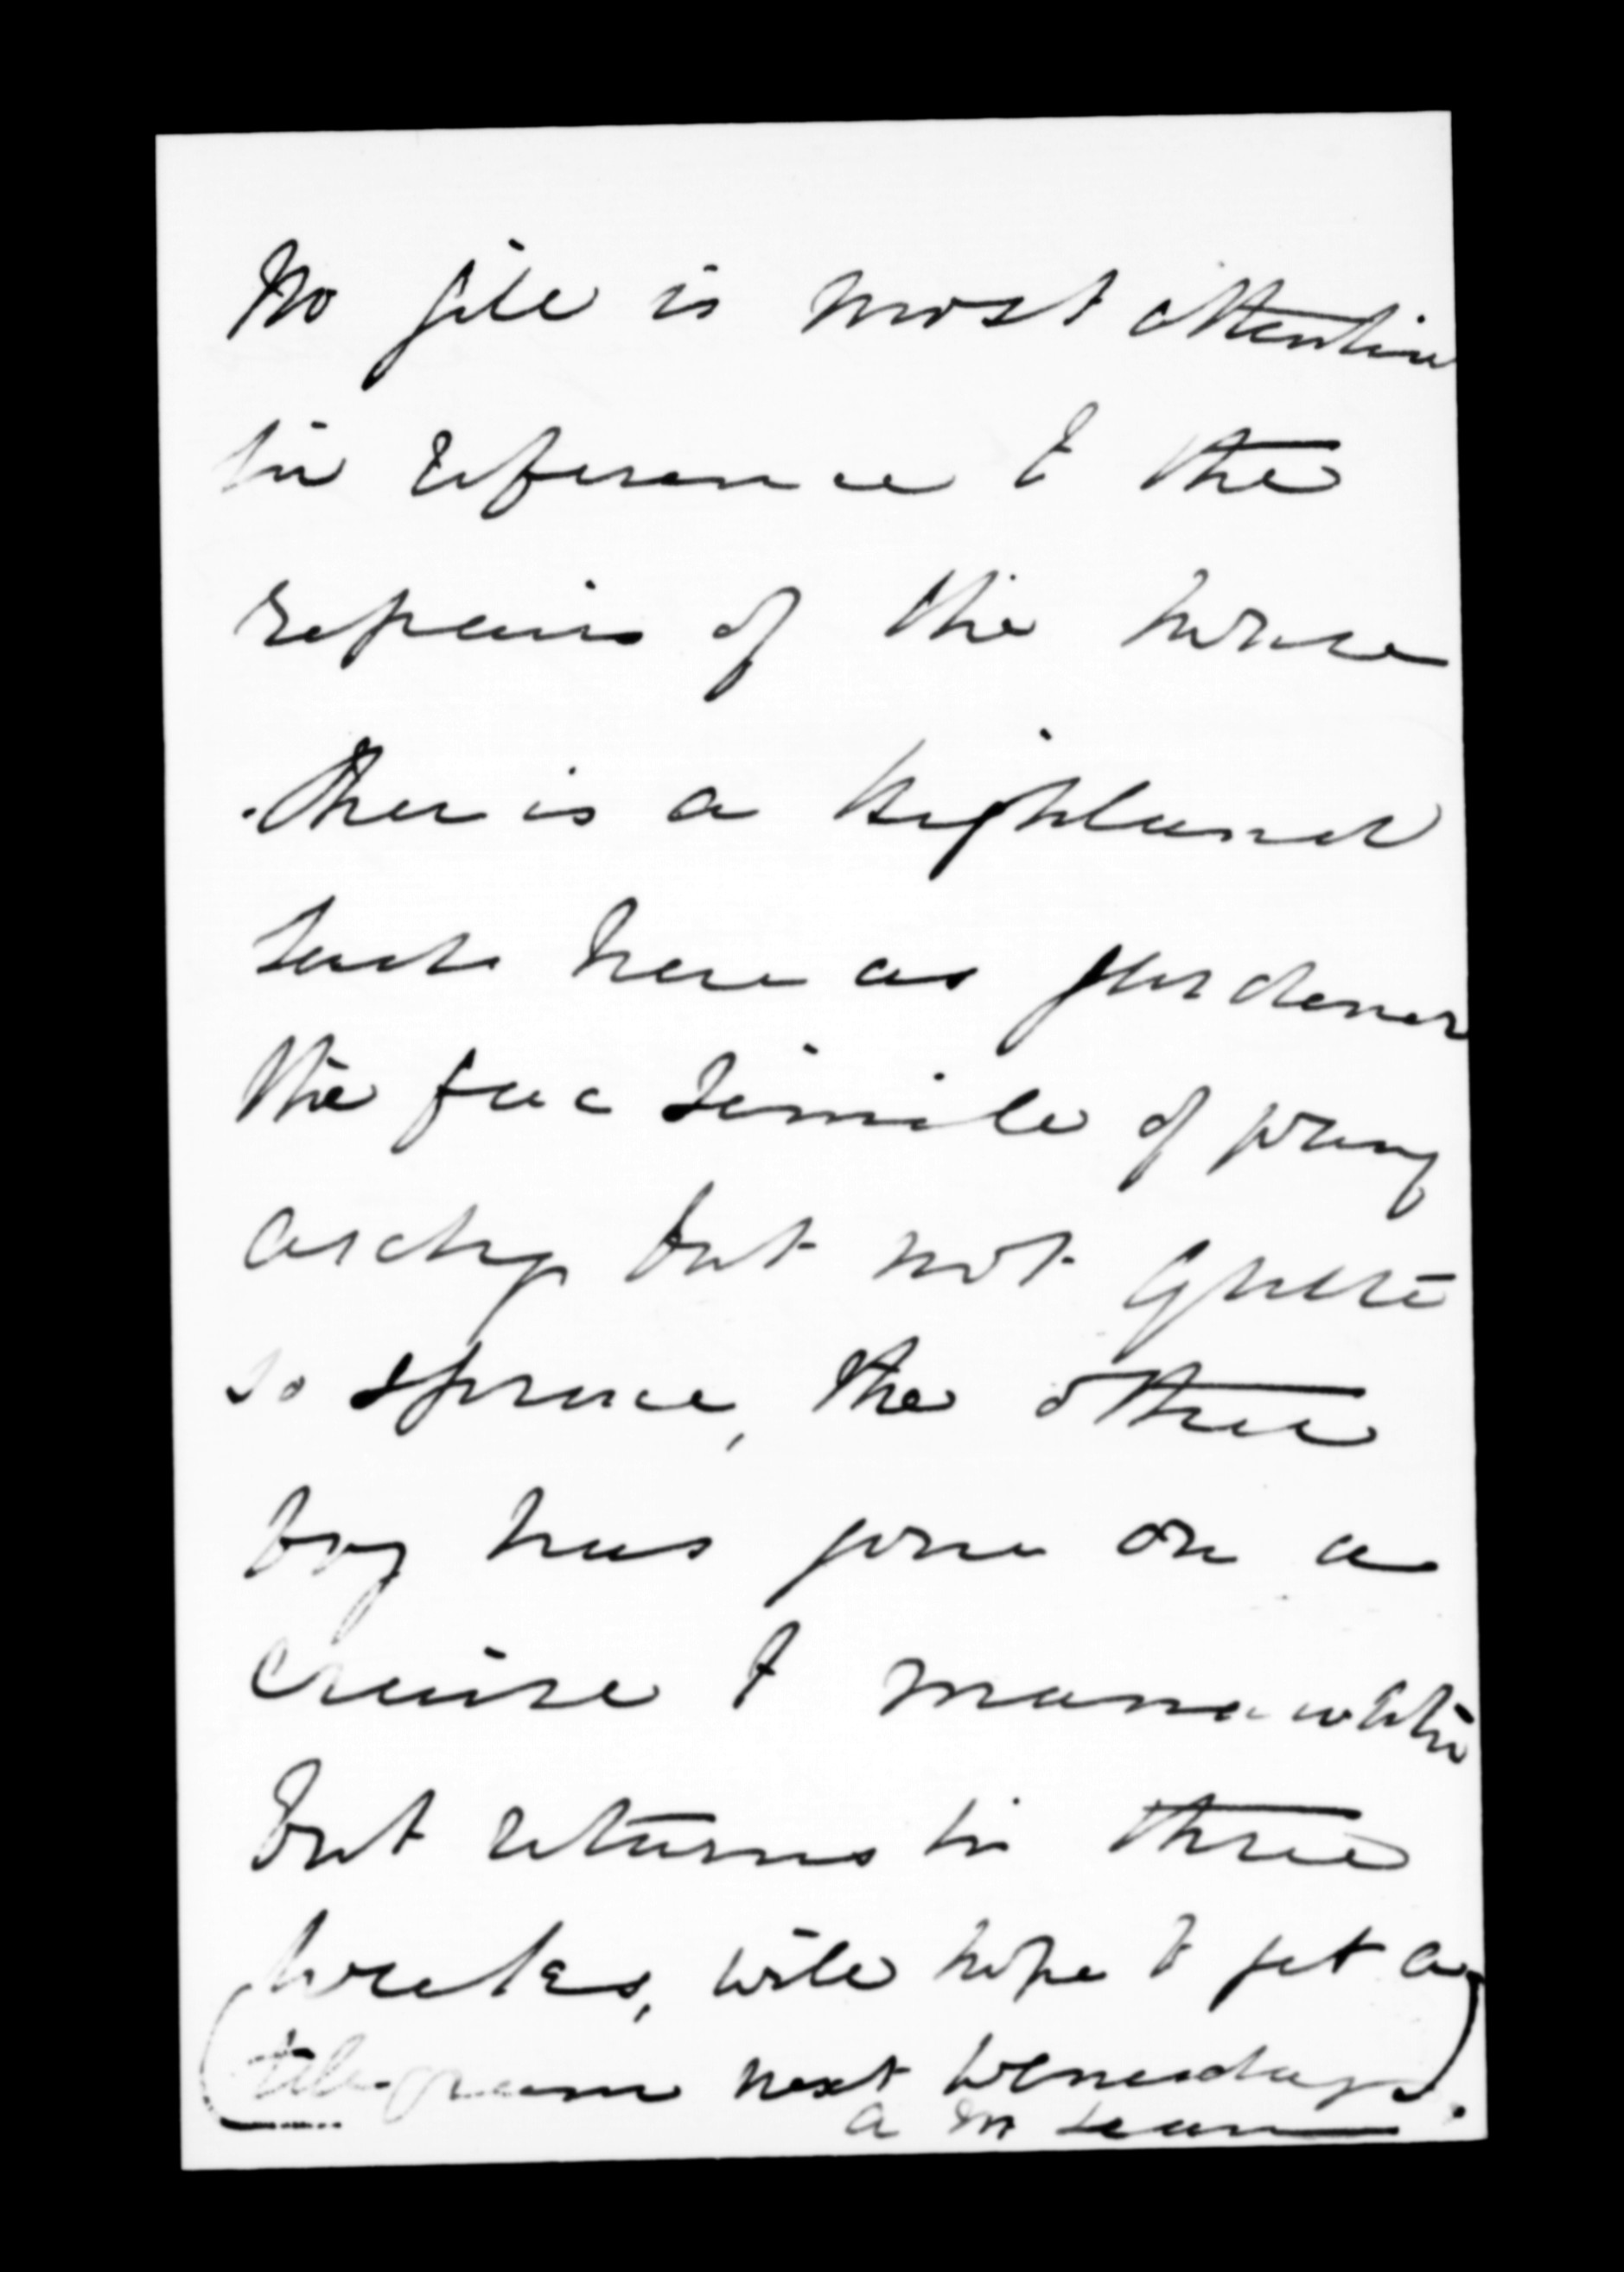 Mr Gill is most attentive
in reference to the
repairs of the house
. there is a highland
lad here as gardener
the fac simile of young
Archy but not quite
so spruce, the other
boy has gone on a
cruise to Manawatu
but returns in three
weeks, will hope to get a
(telegram next Wenesday).
A McLean